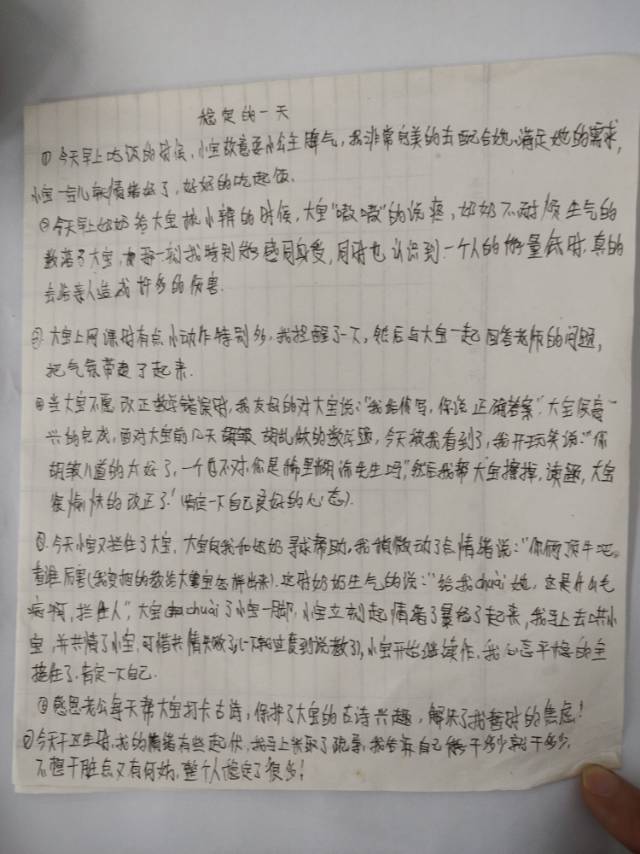 稳定的一天
① 今天早上吃饭的时候，小宝故意耍小公主脾气，我非常完美的去配合她，满足她的需求，
小宝一会儿就情绪好了，好好的吃起饭。
② 今天早上奶奶给大宝梳小辫的时候，大宝"嗷嗷"的说疼，奶奶不耐烦生气的
数落了大宝，那一刻我特别能感同身受，同时也认识到一个人的能量低时，真的
会给亲人造成许多的伤害。
③ 大宝上网课时有点小动作特别多，我提醒了一下，然后与大宝一起回答老师的问题，
把气氛带走了起来。
④ 当大宝不愿改正数学错误时，我友好的对大宝说："我给你写，你说正确答案"，大宝很高
兴的完成，面对大宝前几天胡乱做的数学题，今天被我看到了，我开玩笑说："你
胡教八道的太好了，一个也不对，你是稀里糊涂先生吗"，然后我帮大宝擦掉，读题，大宝
很愉快的改正了！(肯定一下自己良好的心态)。
⑤ 今天小宝又拦住了大宝，大宝向我和奶奶寻求帮助，我稍微动了点情绪说："你俩顶牛吧，
看谁厉害(我变相的教给大宝怎样出来)。这时奶奶生气的说："给我chuài她，这是什么毛
病啊，拦住人"，大宝chuài了小宝一脚，小宝立刻起情绪了暴怒了起来，我马上去哄小
宝，并共情了小宝，可惜共情失败了，小宝开始继续作，我心态平稳的全
接住了。肯定一下自己。
⑥ 感恩老公每天帮大宝打卡古诗，保护了大宝的古诗兴趣，解决了我暂时的焦虑！
⑦ 今天干卫生时，我的情绪有些起伏，我马上采取了疏导，我告诉自己能干多少就干多少，
不想干脏点又有何妨，整个人稳定了很多！